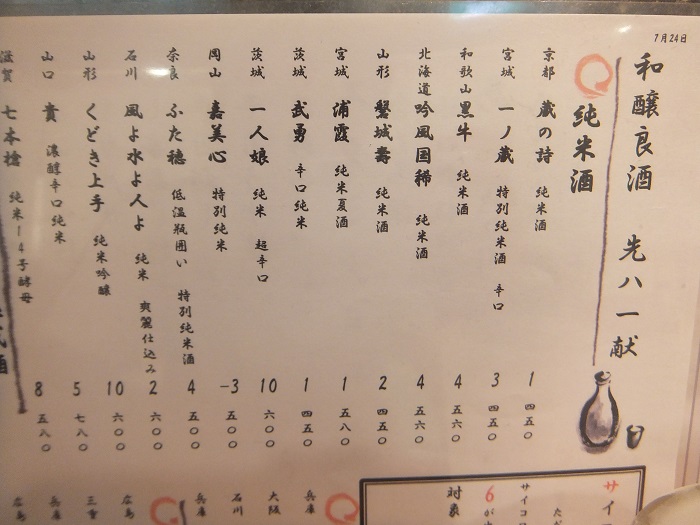 7月24日
和醸良酒 先ハ一献
純米酒
京都 蔵の詩 純米酒 1 四五〇
宮城 一ノ蔵 特別純米酒 辛口 3 四五〇
和歌山 黒牛 純米酒 4 五六〇
北海道 吟風国稀 純米酒 4 五六〇
山形 磐城壽 純米酒 2 四五〇
宮城 浦霞 純米夏酒 1 五八〇
茨城 武勇 辛口純米 1 四五〇
茨城 一人娘 純米 超辛口 10 六〇〇
岡山 嘉美心 特別純米 -3 五〇〇
奈良 ふた穂 低温瓶囲い 特別純米酒 4 五〇〇
石川 風よ水よ人よ 純米 爽麗仕込み 2 六〇〇
山形 くどき上手 純米吟醸 10 六〇〇
山口 貴 濃醇辛口純米 5 七八〇
滋賀 七本槍 純米14号酵母 8 五八〇
サイ
サイコロ
6が
対象
兵庫
大阪
石川
兵庫
広島
三重
兵庫
広島